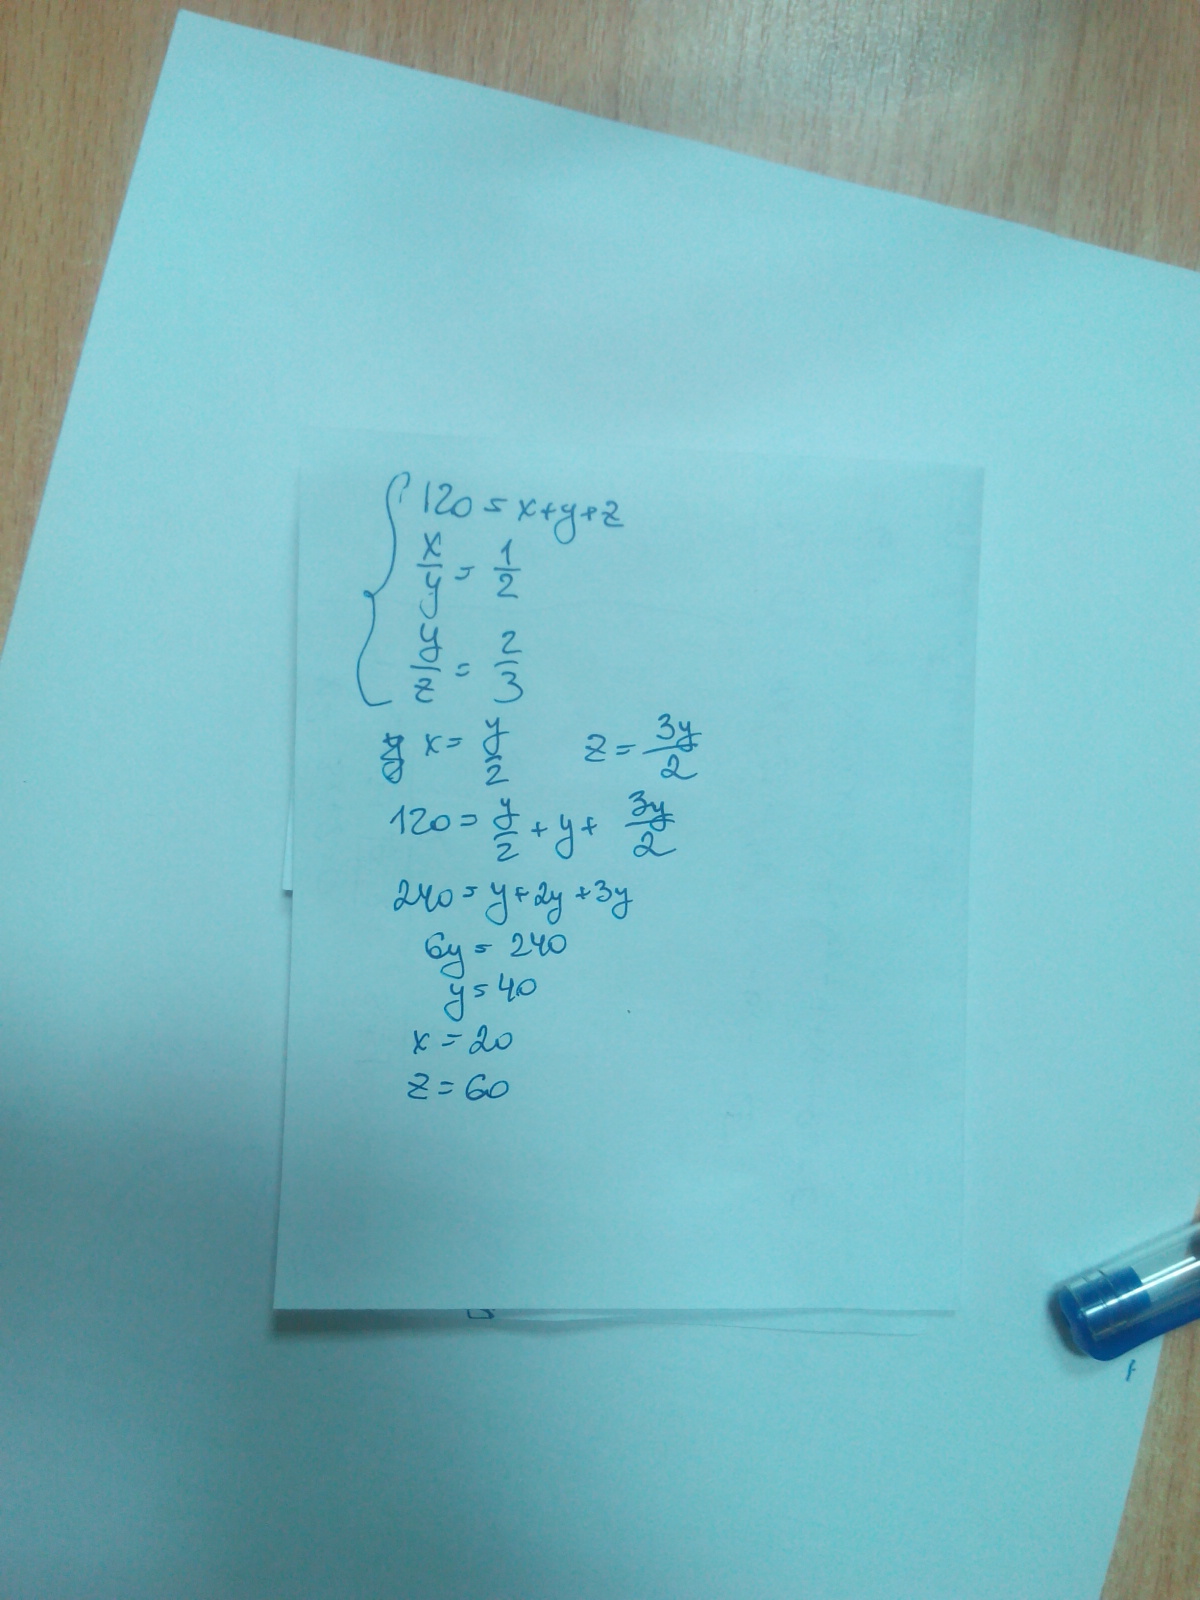 120 = x+y+z
x/y = 1/2
y/z = 2/3
x = y/2 z = 3y/2
120 = y/2 + y + 3y/2
240 = y + 2y + 3y
6y = 240
y = 40
x = 20
z = 60